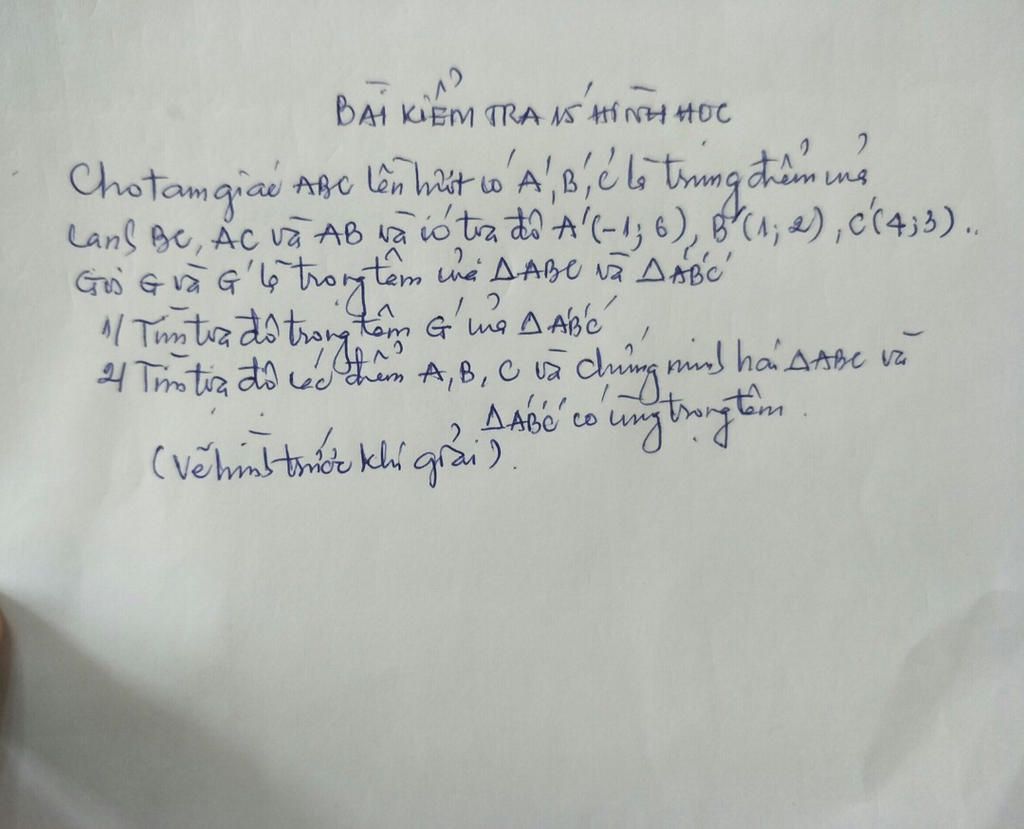 BÀI KIỂM TRA 15' HÌNH HỌC
Cho tam giác ABC lần lượt có A', B', C' là trung điểm của
cạnh BC, AC và AB và có tọa độ A'(-1; 6), B'(1; 2), C'(4; 3)..
Gọi G và G' là trọng tâm của ΔABC và ΔA'B'C'
1/ Tìm tọa độ trọng tâm G' của ΔA'B'C'
2/ Tìm tọa độ các điểm A, B, C và chứng minh hai ΔABC và
ΔA'B'C' có cùng trọng tâm.
(Vẽ hình trước khi giải).